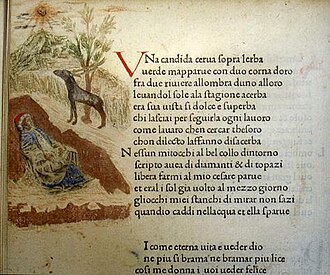 VNa candida cerua sopra lerba
Verde mapparue con duo corna doro
fra due riuiere allombra duno alloro
leuandol sole ala stagione acerba
era sua uista si dolce e superba
chi lasciai per seguirla ogni lauoro
come lauaro chen cercar thesoro
chon dilecto laffanno disacerba
Nessun mitocchi al bel collo dintorno
scripto auea di diamanti & di topazi
libera farmi al mio cesare parue
et eral sol gia uolto al mezzo giorno
gliocchi miei stanchi di mirar non sazi
quando caddi nellacqua et ella sparue
I come eterna uita e ueder dio
ne piu si brama ne bramar piu lice
cosi me donna i uoi ueder felice